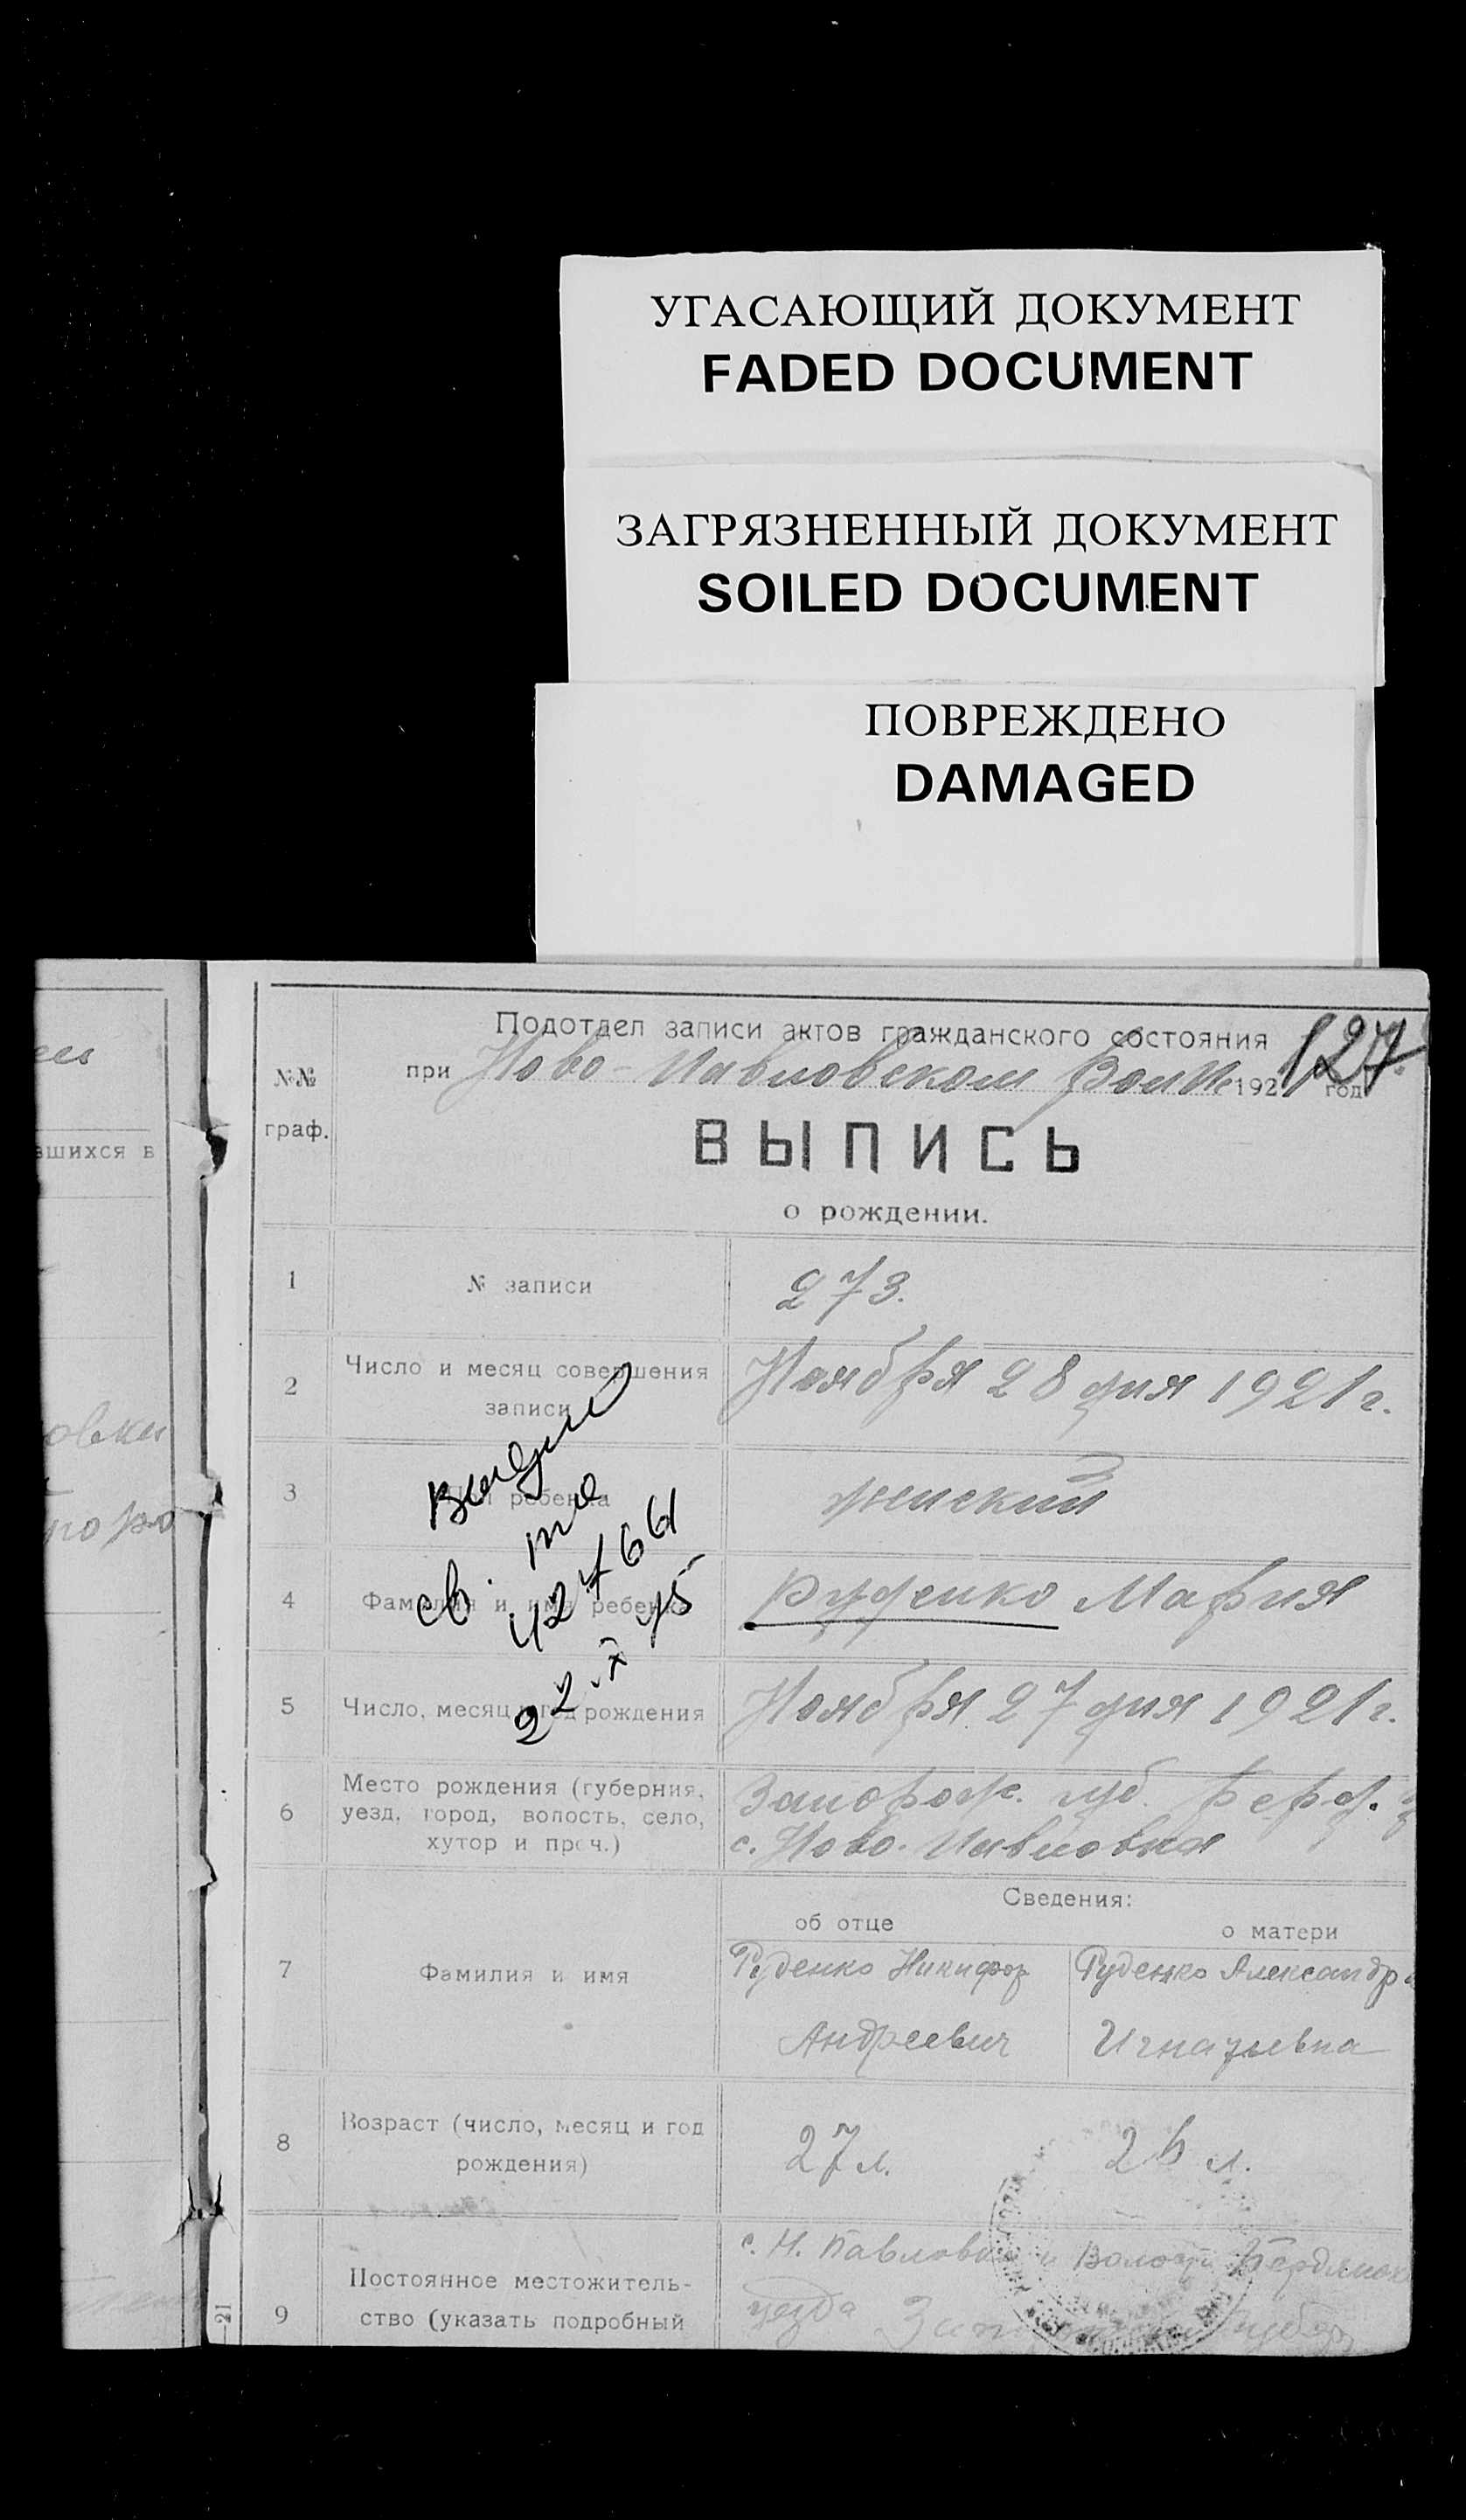 УГАСАЮЩИЙ ДОКУМЕНТ
FADED DOCUMENT
ЗАГРЯЗНЕННЫЙ ДОКУМЕНТ
SOILED DOCUMENT
ПОВРЕЖДЕНО
DAMAGED
вшихся в
овки
№№
граф.
Подотдел записи актов гражданского состояния
при Ново-Павловском 192 год
127
ВЫПИСЬ
о рождении.
1 № записи 273.
2 Число и месяц совершения
записи
Ноября 28 дня 1921 г.
3 Пол ребенка женский
4 Фамилия и имя ребенка Руденко Мария
5 Число, месяц и год рождения Ноября 27 дня 1921 г.
св.
22 X 75
6 Место рождения (губерния,
уезд, город, волость, село,
хутор и проч.)
Запорож. губ. Берд.
с. Ново-Павловка
Сведения:
об отце о матери
7 Фамилия и имя
Руденко Никифор
Андреевич
Руденко Александра
Игнатьевна
8 Возраст (число, месяц и год
рождения)
27 л. 26 л.
9 Постоянное местожитель-
ство (указать подробный
с. Н. Павловка
уезда
21